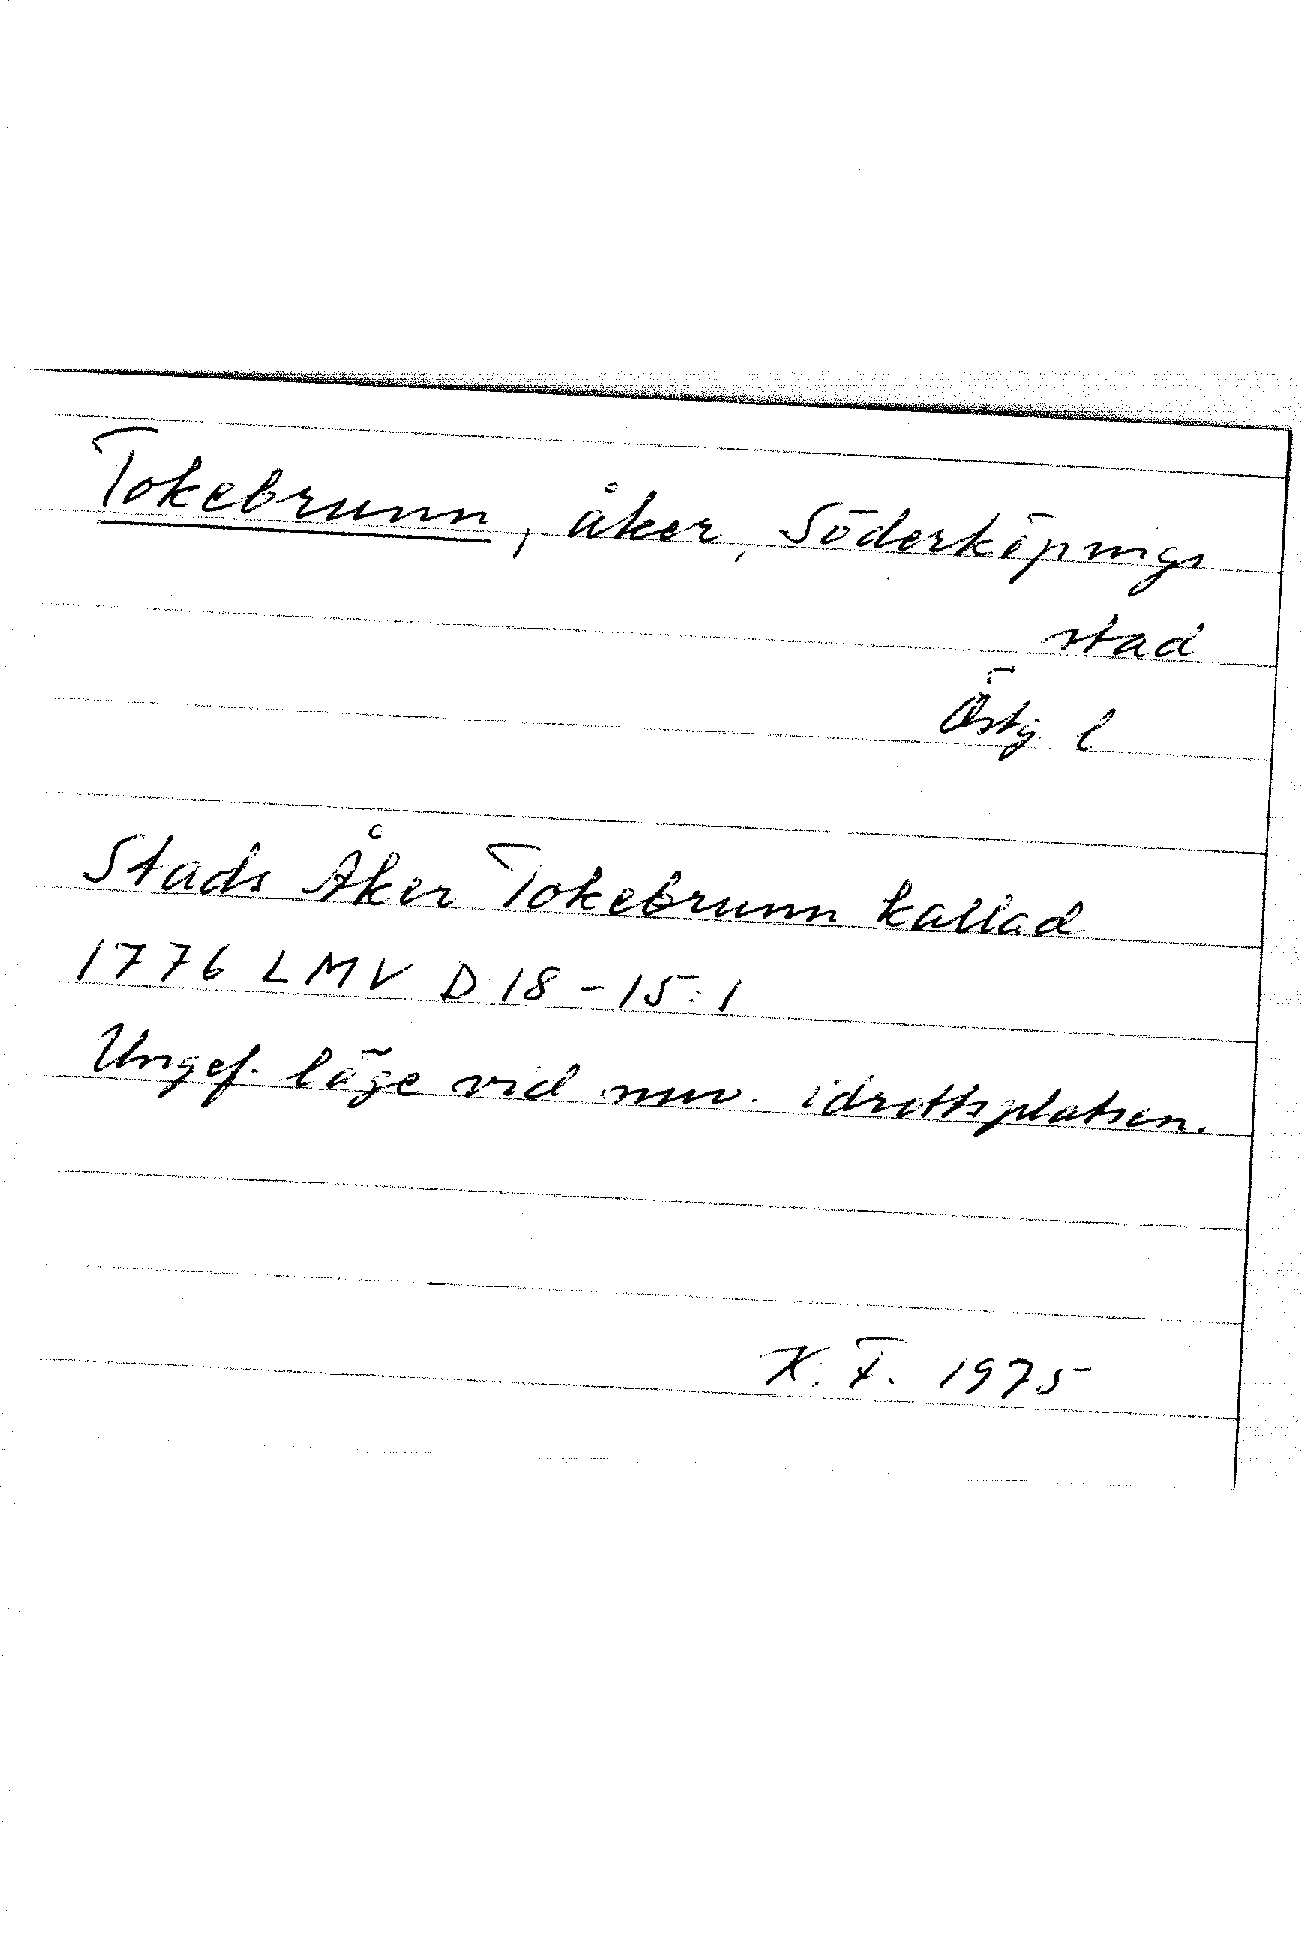 Tokebrunn, åker, Söderköpings
stad
Östg l
Stads Åker Tokebrunn kallad
1776 LMV D 18-15:1
Ungef. läge vid nuv. idrottsplatsen.
K. F. 1975